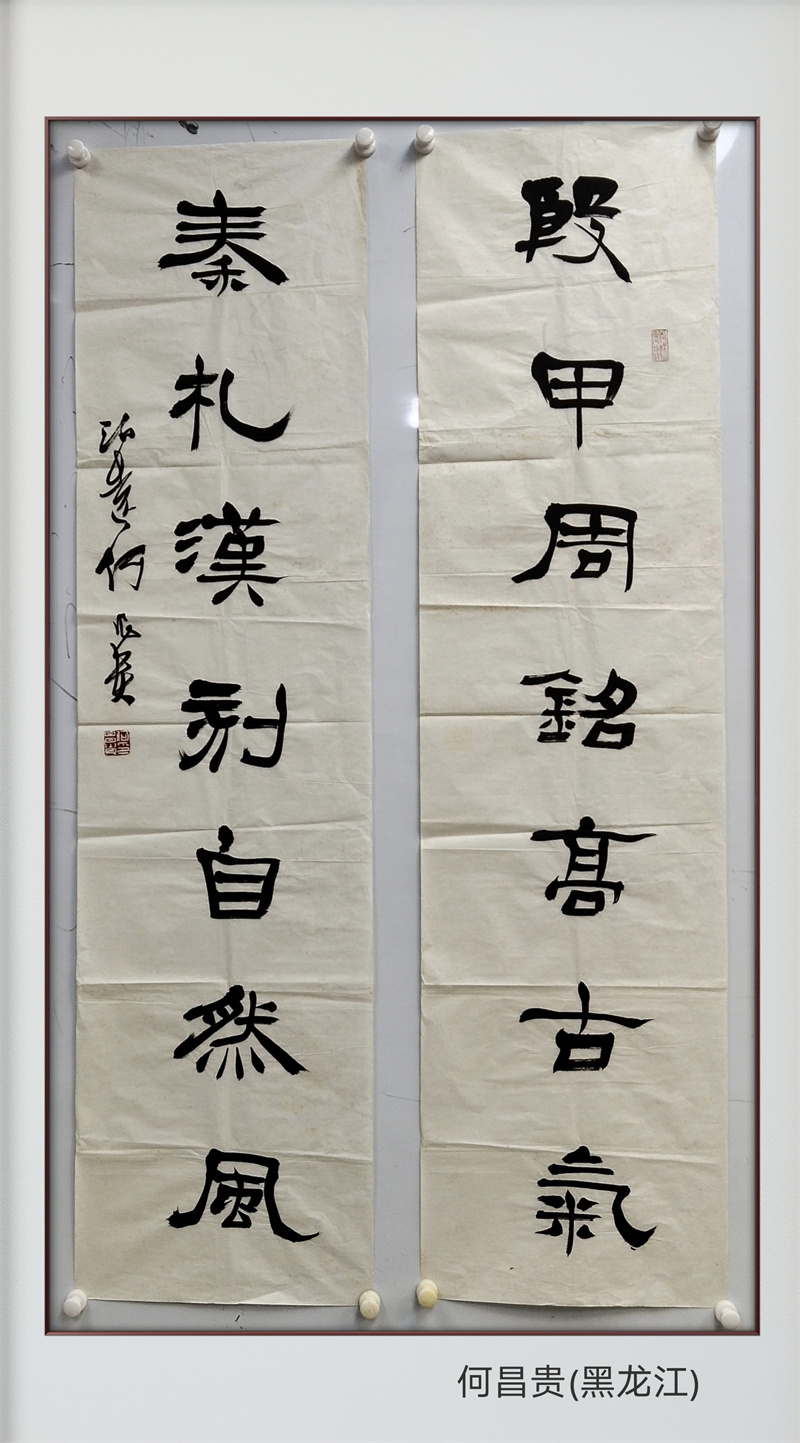 殷甲周銘髙古氣
秦札漢刻自然風
何昌貴
何昌贵(黑龙江)